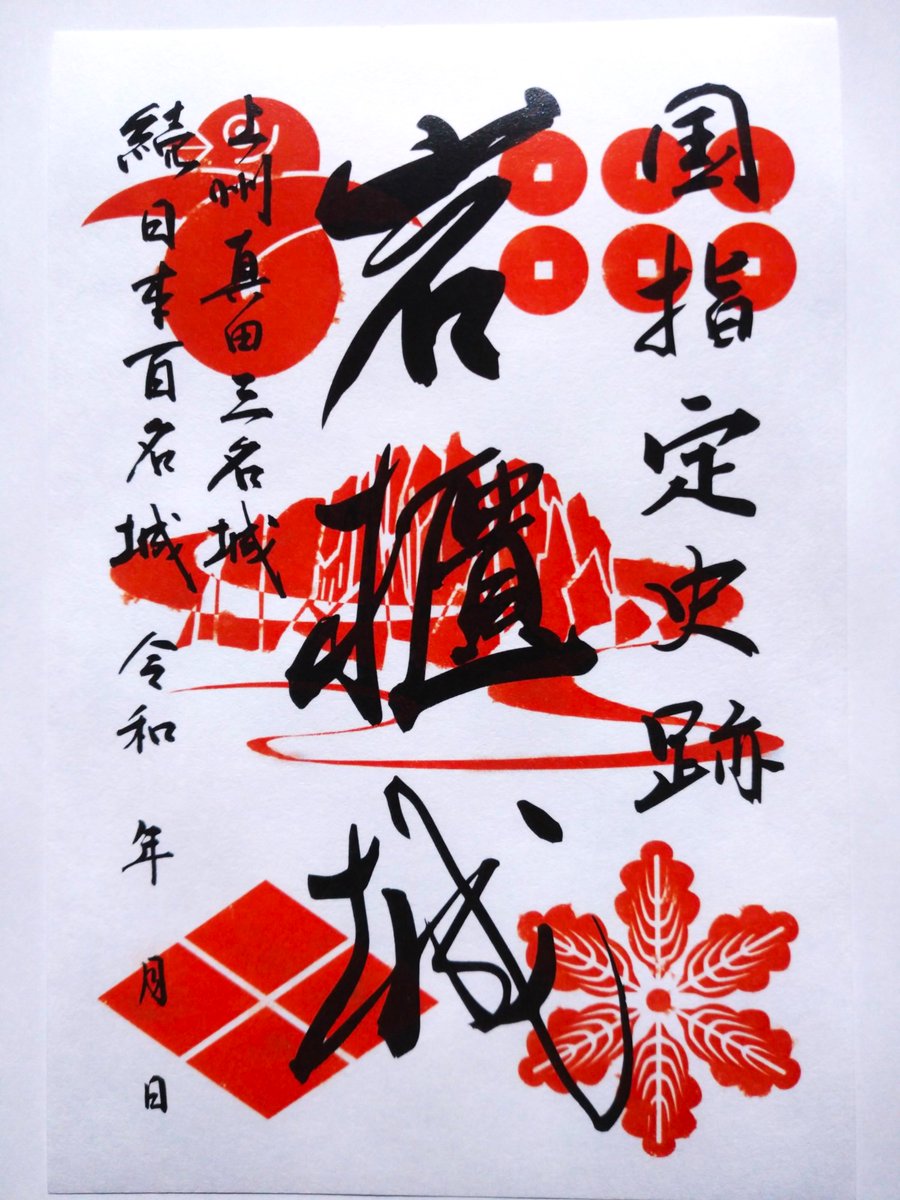 国指定史跡
岩櫃城
上州真田三名城
続日本百名城 令和 年 月 日